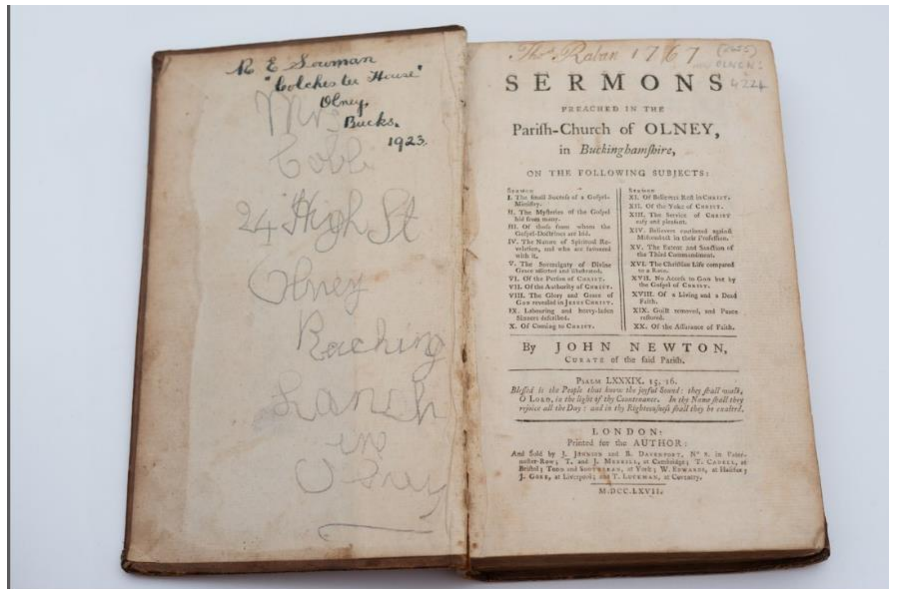 R E Sowman
"Colchester House"
Olney.
Bucks.
1923
Mrs
Cobb
24 High St
Olney
Lunch
in
Thos. Raban 1767
OLNEN:
4224
SERMONS
PREACHED IN THE
Pariſh-Church of OLNEY,
in Buckinghamſhire,
ON THE FOLLOWING SUBJECTS:
SERMON
I. The ſmall Succeſs of a Goſpel-
Miniſtry.
II. The Myſteries of the Goſpel
hid from many.
III. Of thoſe from whom the
Goſpel-Doctrines are hid.
IV. The Nature of Spiritual Re-
velation, and who are favoured
with it.
V. The Sovereignty of Divine
Grace aſſerted and illuſtrated.
VI. Of the Perſon of CHRIST.
VII. Of the Authority of CHRIST.
VIII. The Glory and Grace of
GOD revealed in JESUS CHRIST.
IX. Labouring and heavy-laden
Sinners deſcribed.
X. Of Coming to CHRIST.
SERMON
XI. Of Believers Reſt in CHRIST.
XII. Of the Yoke of CHRIST.
XIII. The Service of CHRIST
eaſy and pleaſant.
XIV. Believers cautioned againſt
Miſconduct in their Profeſſion.
XV. The Extent and Sanction of
the Third Commandment.
XVI. The Chriſtian Life compared
to a Race.
XVII. No Acceſs to GOD but by
the Goſpel of CHRIST.
XVIII. Of a Living and a Dead
Faith.
XIX. Guilt removed, and Peace
reſtored.
XX. Of the Aſſurance of Faith.
By JOHN NEWTON,
CURATE of the ſaid Pariſh.
PSALM LXXXIX. 15, 16.
Bleſſed is the People that know the joyful Sound: they ſhall walk,
O LORD, in the light of thy Countenance. In thy Name ſhall they
rejoice all the Day: and in thy Righteouſneſs ſhall they be exalted.
LONDON:
Printed for the AUTHOR:
And ſold by J. JOHNSON and B. DAVENPORT, No 8. in Pater-
noſter-Row; T. and J. MERRILL, at Cambridge; T. CADELL, at
Briſtol; TODD and SOOTHERAN, at York; W. EDWARDS, at Halifax;
J. GORE, at Liverpool; and T. LUCKMAN, at Coventry.
M.DCC.LXVII.